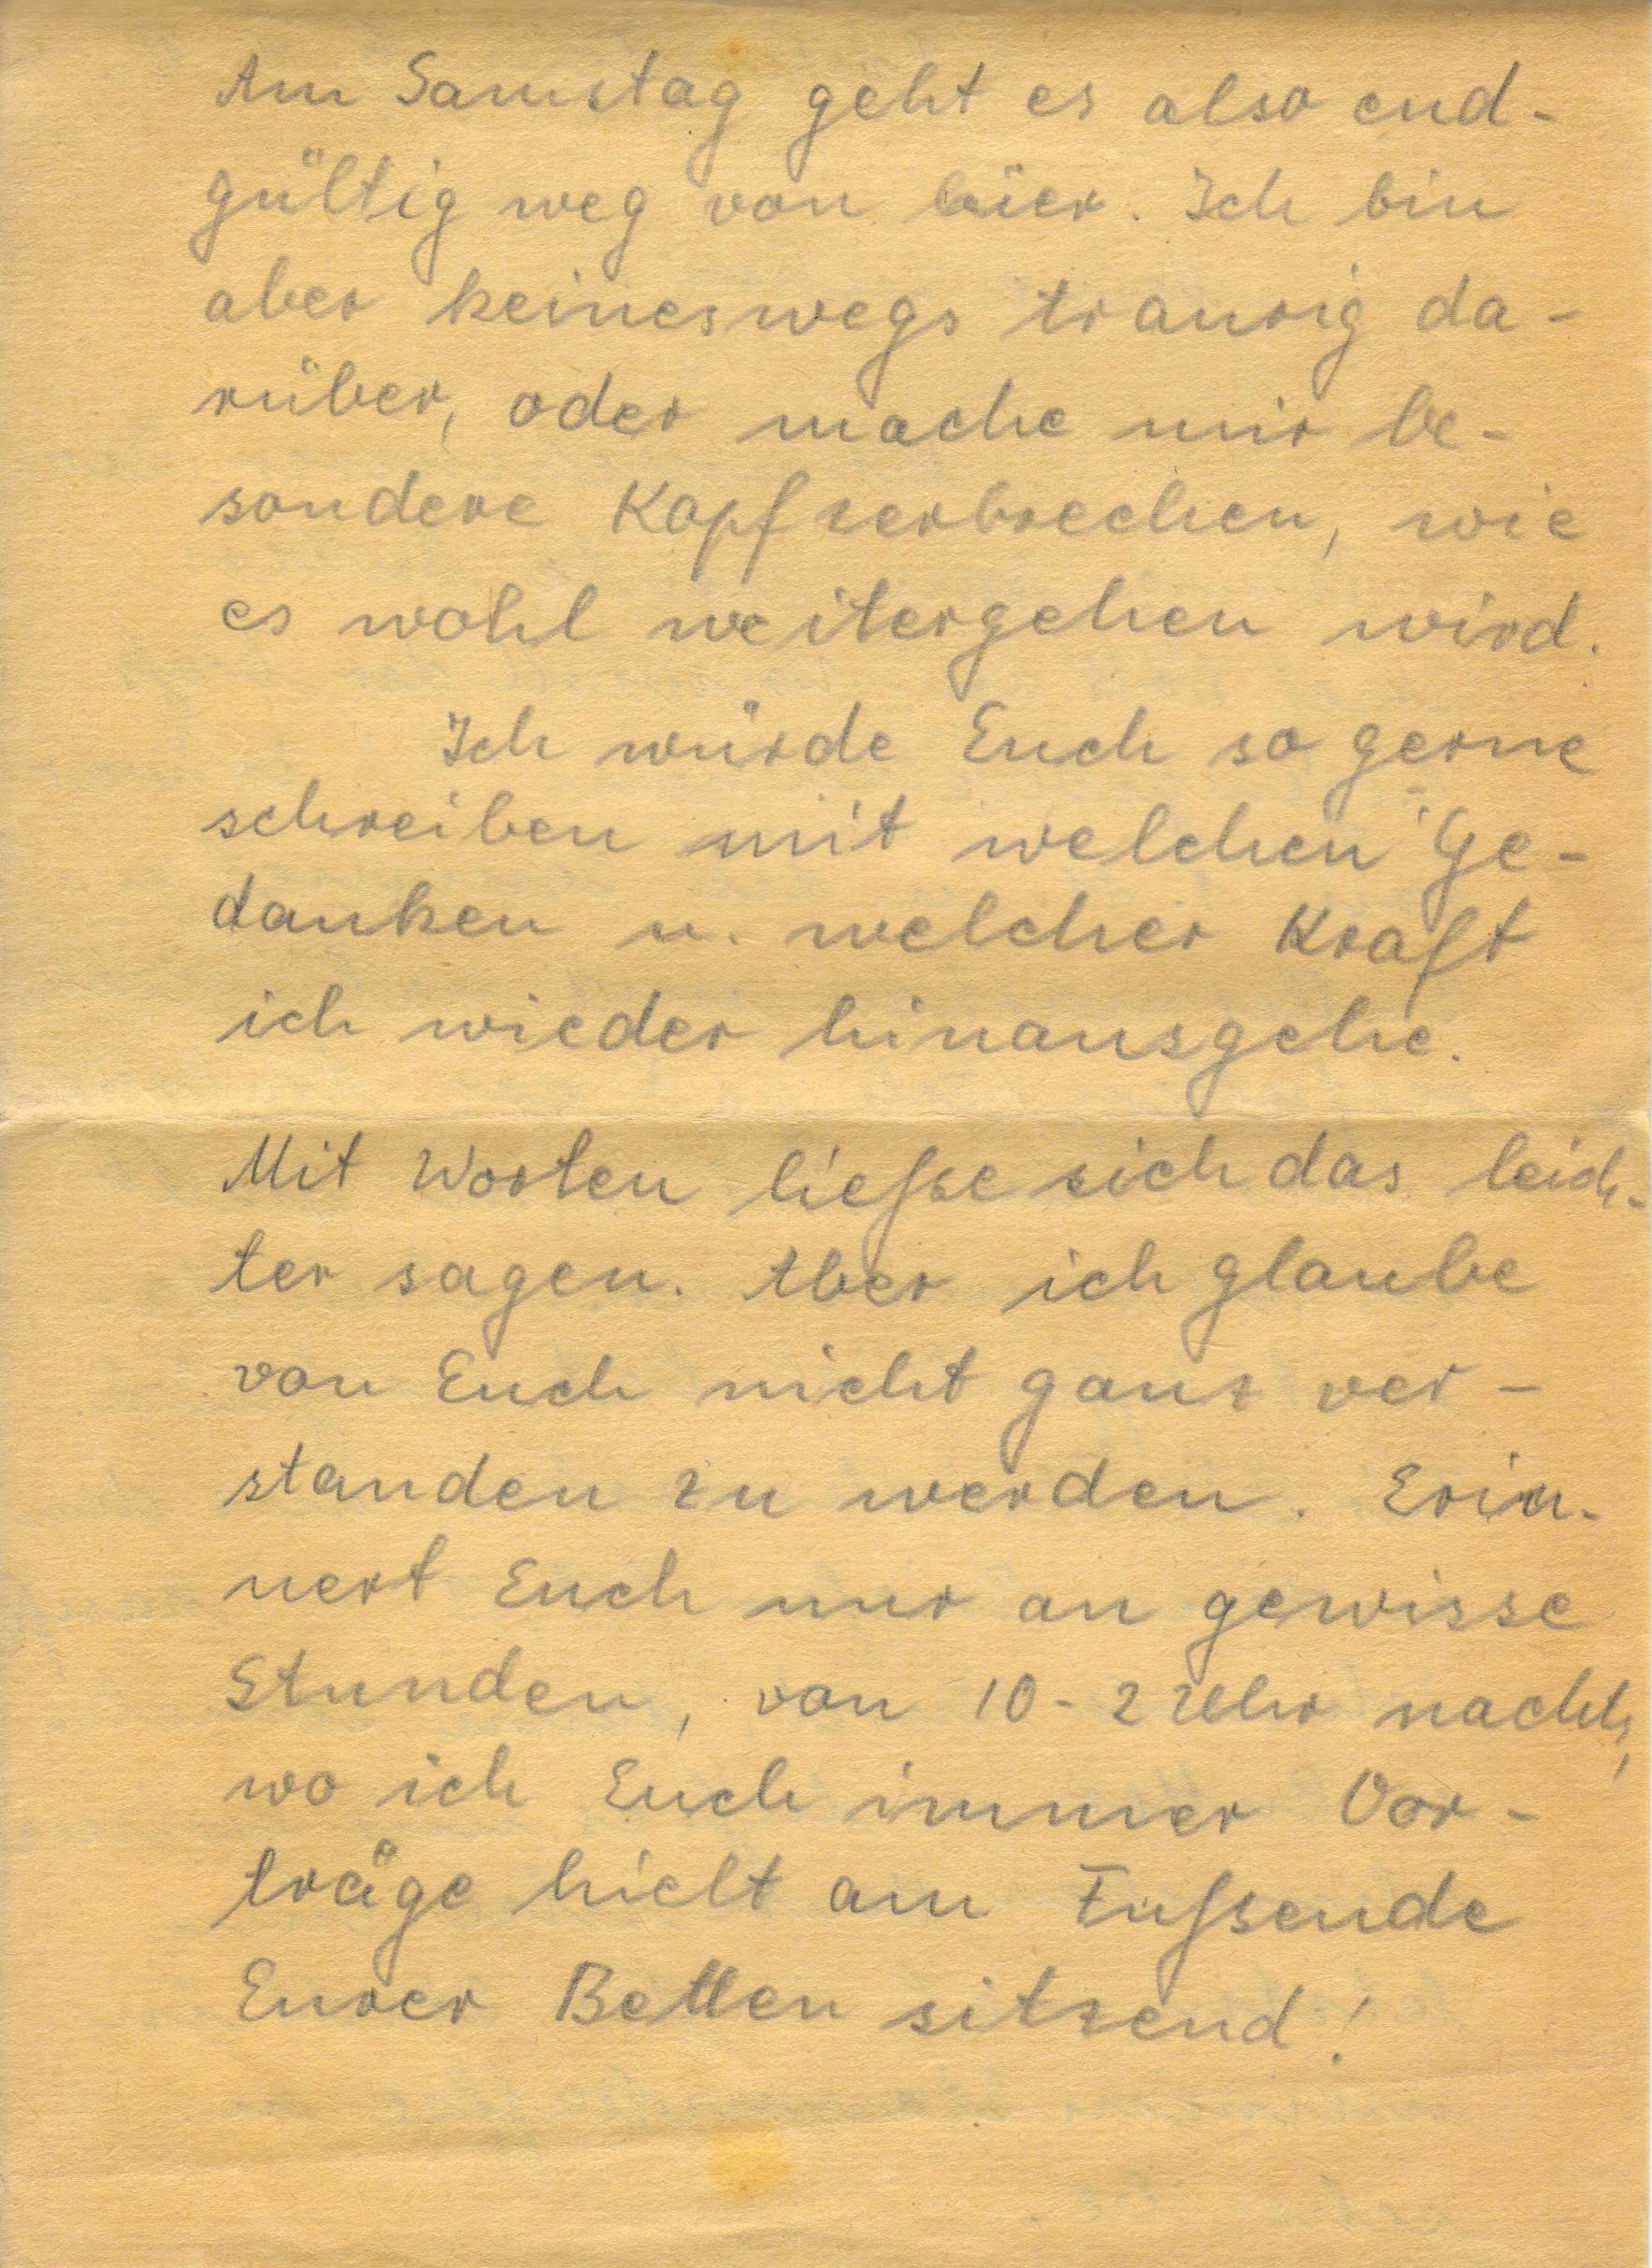 Am Samstag geht es also end-
gültig weg von hier. Ich bin
aber keineswegs traurig da-
rüber, oder mache mir be-
sondere Kopfzerbrechen, wie
es wohl weitergehen wird.
Ich würde Euch so gerne
schreiben mit welchen Ge-
danken u. welcher Kraft
ich wieder hinausgehe.
Mit Worten ließe sich das leich-
ter sagen. Aber ich glaube
von Euch nicht ganz ver-
standen zu werden. Erin-
nert Euch nur an gewisse
Stunden, von 10-2 Uhr nachts,
wo ich Euch immer Vor-
träge hielt am Fußende
Eurer Betten sitzend!